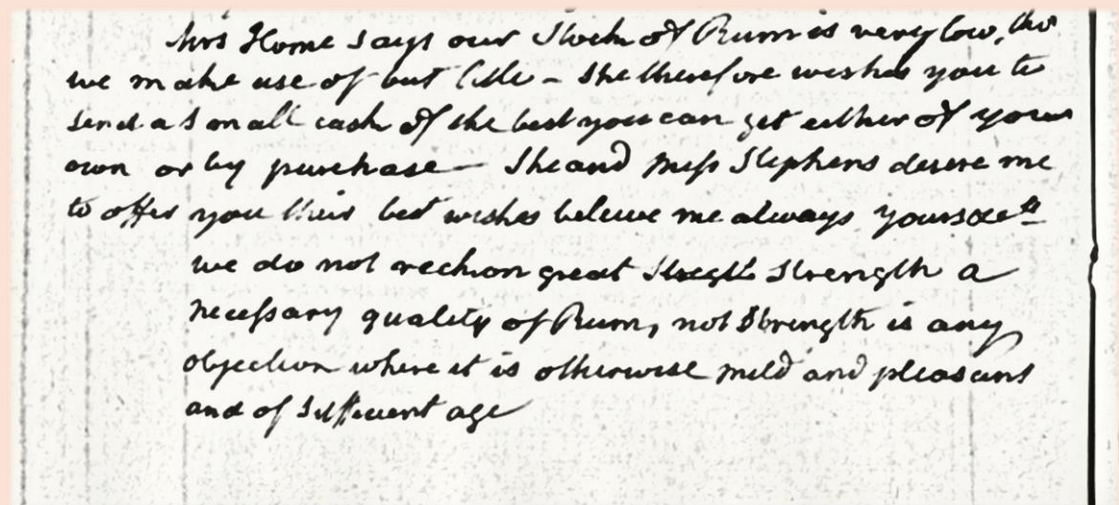 Mrs Home says our Stock of Rum is very low, tho
we make use of but litle – She therefore wishes you to
send a small cask of the best you can get either of your
own or by purchase — She and Miss Stephens desire me
to offer you their best wishes beleive me always yours &ca
we do not reckon great Stregth Strength a
necessary quality of Rum, not Strength is any
objection where it is otherwise mild and pleasant
and of sufficient age